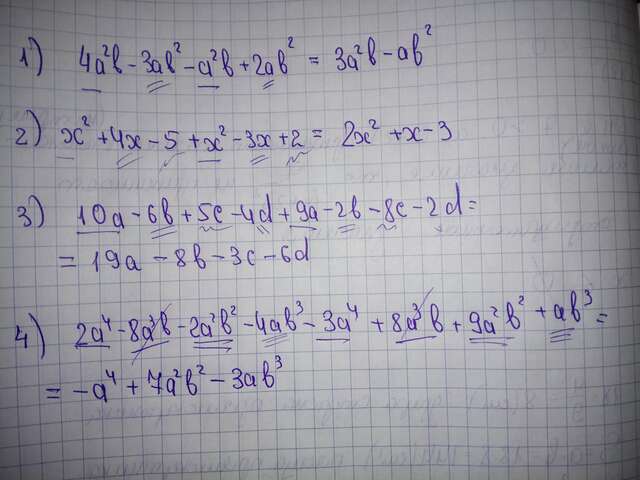 1) 4a²b - 3ab² - a²b + 2ab² = 3a²b - ab²
2) x² + 4x - 5 + x² - 3x + 2 = 2x² + x - 3
3) 10a - 6b + 5c - 4d + 9a - 2b - 8c - 2d =
= 19a - 8b - 3c - 6d
4) 2a⁴ - 8a³b - 2a²b² - 4ab³ - 3a⁴ + 8a³b + 9a²b² + ab³ =
= -a⁴ + 7a²b² - 3ab³